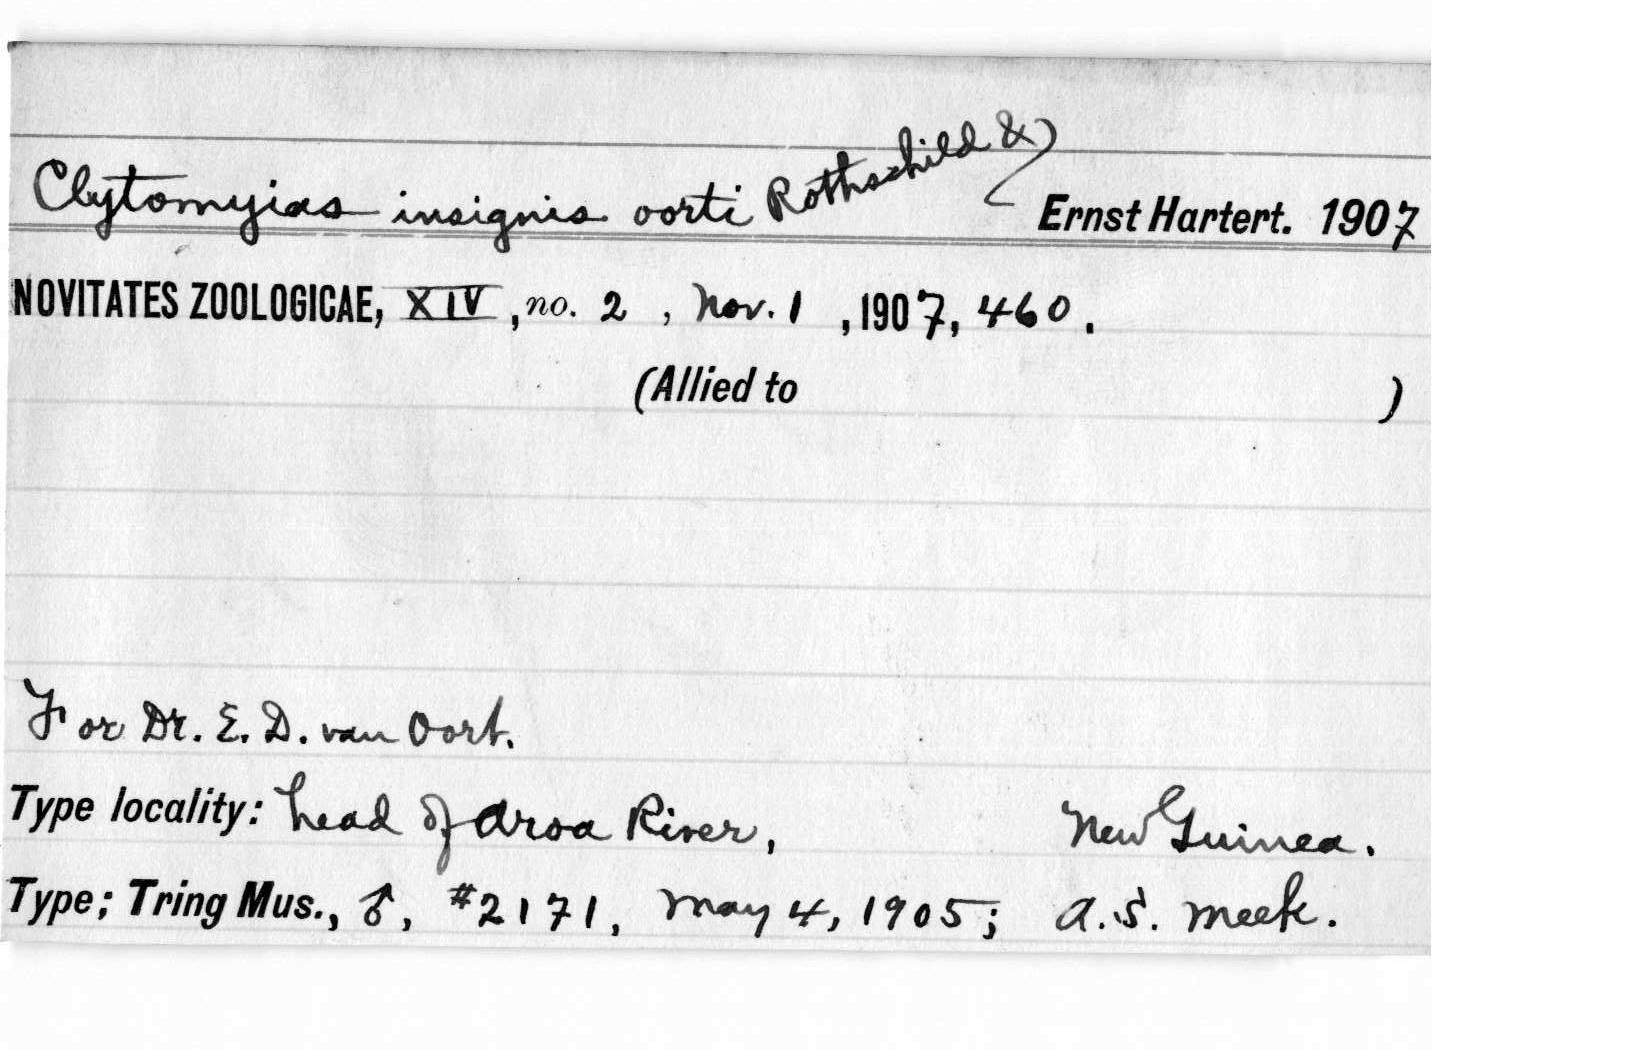 Clytomyias insignis oorti Rothschild & Ernst Hartert. 1907
NOVITATES ZOOLOGICAE, XIV, no. 2, Nov. 1, 1907, 460.
(Allied to )
For Dr. E. D. van Oort.
Type locality: head of Aroa River, New Guinea.
Type; Tring Mus., ♂, #2171, May 4, 1905; A.S. Meek.